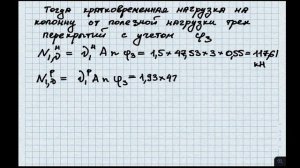 Тогда кратковременная нагрузка на
колонну от полезной нагрузки трех
перекрытий с учетом φ₃
N₁,ᵥᴴ = ν₁ᴴ A n φ₃ = 1,5 × 47,53 × 3 × 0,55 = 117,61
кН
N₁,ᵥᴾ = ν₁ᴾ A n φ₃ = 1,93 × 47